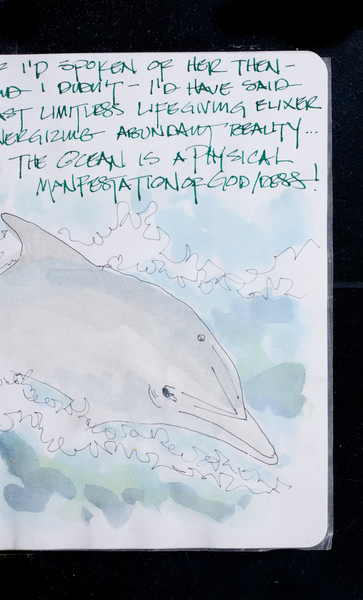 I'D SPOKEN OF HER THEN-
I DIDN'T - I'D HAVE SAID
LIMITLESS LIFEGIVING ELIXER
ABUNDANT REALITY...
THE OCEAN IS A PHYSICAL
MANFESTATION OF GOD/DESS!